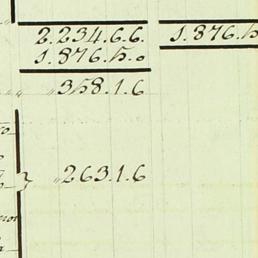 2.234.6.6. 1.876.15
1.876.15.0
"358.1.6
"263.1.6